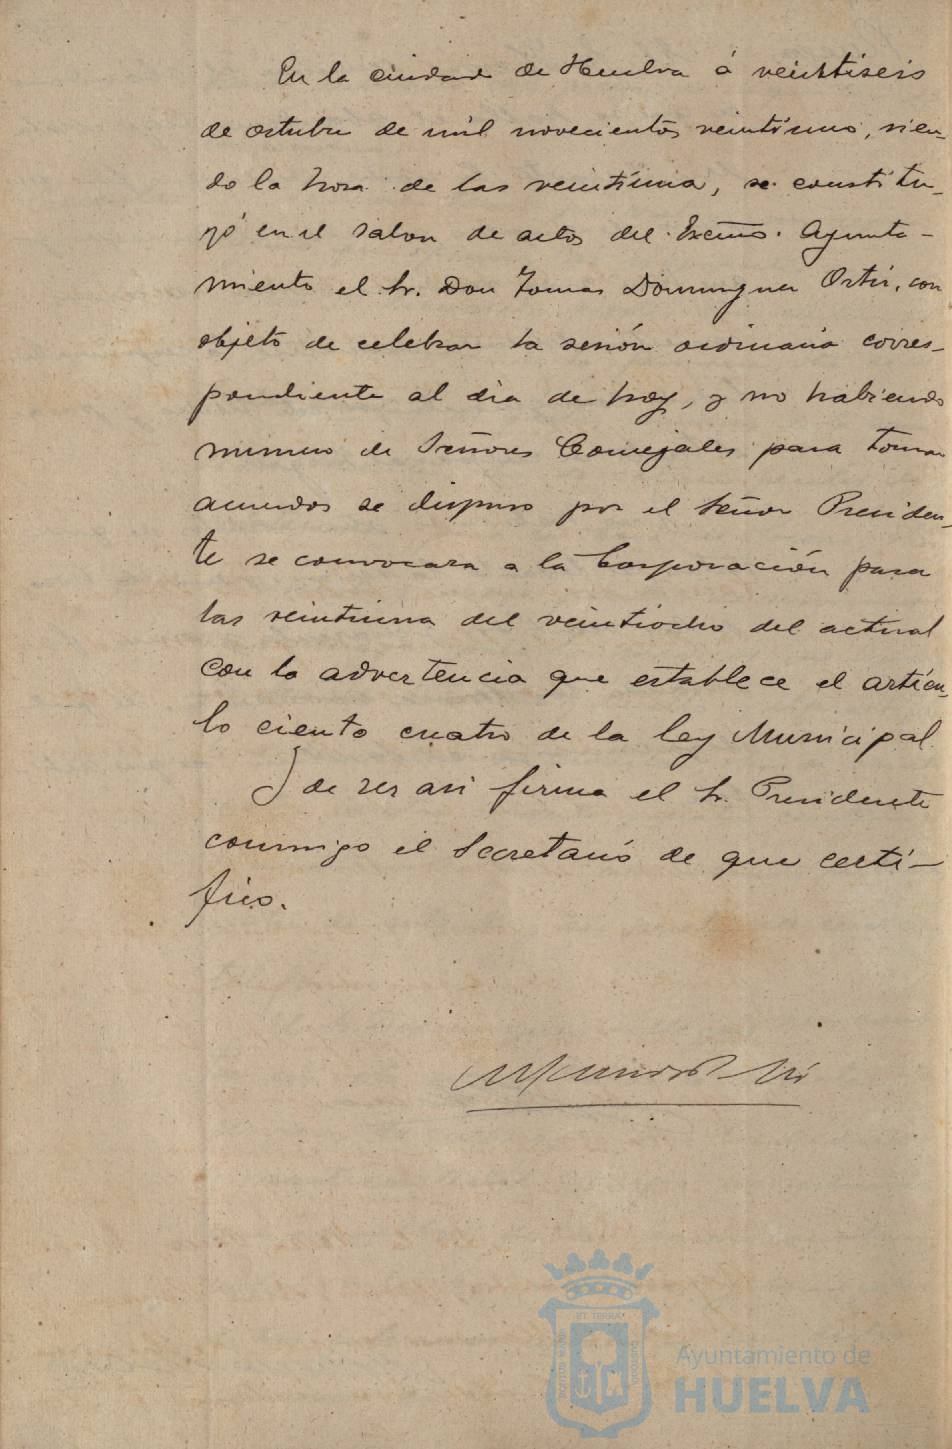 En la ciudad de Huelva á veintiseis
de octubre de mil novecientos veintiuno, sien-
do la hora de las veintiuna, se constitu-
yó en el salon de actos del Excmo. Ayunta-
miento el Sr. Don Tomas Dominguez Ortiz, con
objeto de celebrar la sesión ordinaria corres-
pondiente al dia de hoy, y no habiendo
numero de Señores Concejales para tomar
acuerdos se dispuso por el Señor Presiden-
te se convocara a la Corporación para
las veintiuna del veintiocho del actual
con la advertencia que establece el artícu-
lo ciento cuatro de la Ley Municipal.
Y de ser asi firma el Sr. Presidente
conmigo el Secretario de que certi-
fico.
ET TERRA
Ayuntamiento de
HUELVA